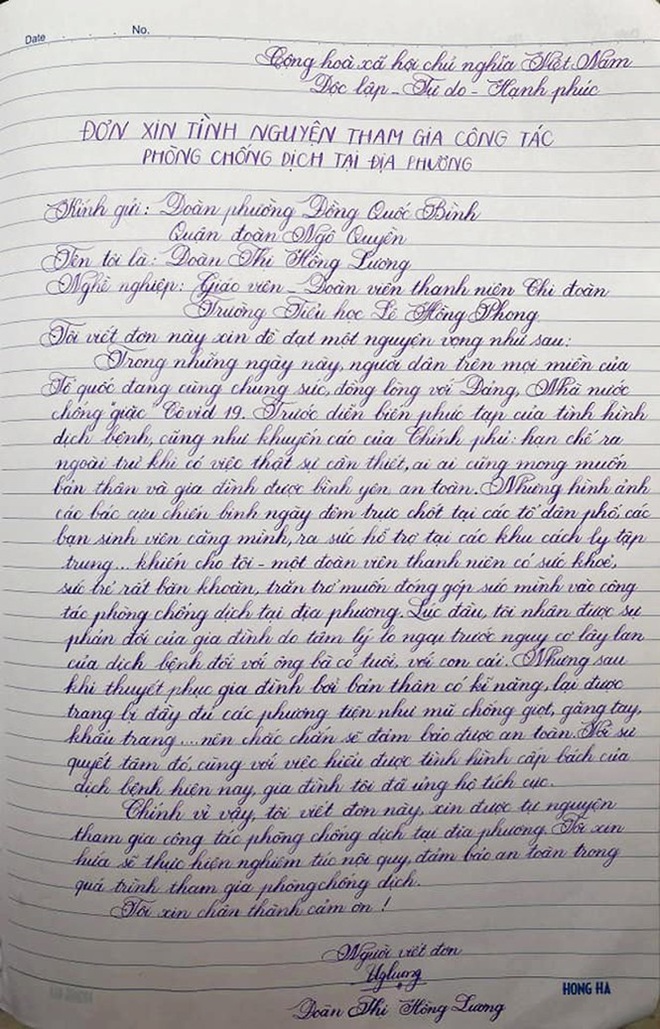 Date No.
Cộng hoà xã hội chủ nghĩa Việt Nam
Độc lập - Tự do - Hạnh phúc
ĐƠN XIN TÌNH NGUYỆN THAM GIA CÔNG TÁC
PHÒNG CHỐNG DỊCH TẠI ĐỊA PHƯƠNG
Kính gửi: Đoàn phường Đồng Quốc Bình
Quận đoàn Ngô Quyền
Tên tôi là: Đoàn Thị Hồng Lương
Nghề nghiệp: Giáo viên - Đoàn viên thanh niên Chi đoàn
Trường Tiểu học Lê Hồng Phong
Tôi viết đơn này xin đề đạt một nguyện vọng như sau:
Trong những ngày này, người dân trên mọi miền của
Tổ quốc đang cùng chung sức, đồng lòng với Đảng, Nhà nước
chống "giặc" Covid 19. Trước diễn biến phức tạp của tình hình
dịch bệnh, cũng như khuyến cáo của Chính phủ: hạn chế ra
ngoài trừ khi có việc thật sự cần thiết, ai ai cũng mong muốn
bản thân và gia đình được bình yên, an toàn. Nhưng hình ảnh
các bác cựu chiến binh ngày đêm trực chốt tại các tổ dân phố, các
bạn sinh viên căng mình, ra sức hỗ trợ tại các khu cách ly tập
trung... khiến cho tôi - một đoàn viên thanh niên có sức khoẻ,
sức trẻ rất băn khoăn, trăn trở muốn đóng góp sức mình vào công
tác phòng chống dịch tại địa phương. Lúc đầu, tôi nhận được sự
phản đối của gia đình do tâm lý lo ngại trước nguy cơ lây lan
của dịch bệnh đối với ông bà có tuổi, với con cái. Nhưng sau
khi thuyết phục gia đình bởi bản thân có kĩ năng, lại được
trang bị đầy đủ các phương tiện như mũ chống giọt, găng tay,
khẩu trang... nên chắc chắn sẽ đảm bảo được an toàn. Với sự
quyết tâm đó, cùng với việc hiểu được tình hình cấp bách của
dịch bệnh hiện nay, gia đình tôi đã ủng hộ tích cực.
Chính vì vậy, tôi viết đơn này, xin được tự nguyện
tham gia công tác phòng chống dịch tại địa phương. Tôi xin
hứa sẽ thực hiện nghiêm túc nội quy, đảm bảo an toàn trong
quá trình tham gia phòng chống dịch.
Tôi xin chân thành cảm ơn!
Người viết đơn
HONG HA
Đoàn Thị Hồng Lương